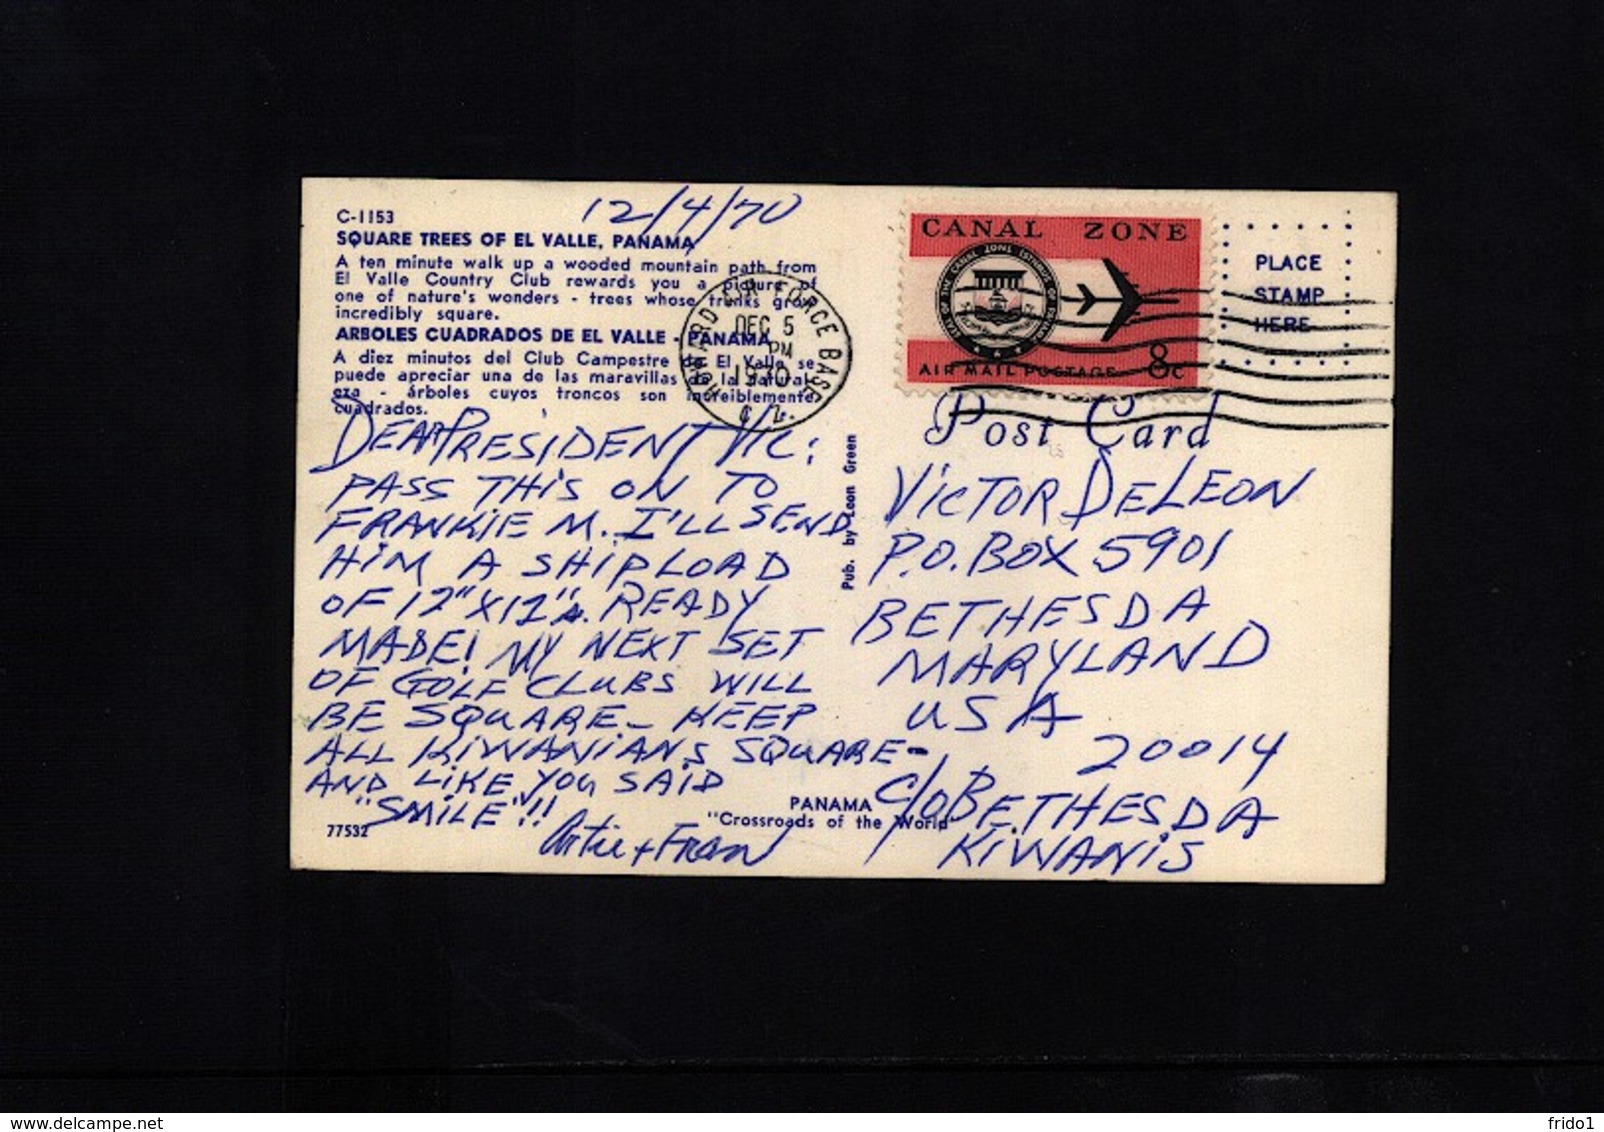 12/4/70
C-1153
SQUARE TREES OF EL VALLE, PANAMA
A ten minute walk up a wooded mountain path from
El Valle Country Club rewards you a picture of
one of nature's wonders - trees whose trunks grow
incredibly square.
ARBOLES CUADRADOS DE EL VALLE - PANAMA
A diez minutos del Club Campestre de El Valle se
puede apreciar una de las maravillas de la natural
eza - árboles cuyos troncos son increiblemente
cuadrados.
AIR FORCE BASE
DEC 5
PM
1970
C Z.
CANAL ZONE
SEAL OF THE CANAL ZONE ISTHMUS OF PANAMA
AIR MAIL POSTAGE 8c
PLACE
STAMP
HERE
Post Card
DEAR PRESIDENT VIC:
PASS THIS ON TO
FRANKIE M. I'LL SEND
HIM A SHIPLOAD
OF 12"X12"s. READY
MADE! MY NEXT SET
OF GOLF CLUBS WILL
BE SQUARE - KEEP
ALL KIWANIANS SQUARE -
AND LIKE YOU SAID
"SMILE"!!
Artie + Fran
77532
Pub. by Leon Green
PANAMA
"Crossroads of the World"
VICTOR DELEON
P.O. BOX 5901
BETHESDA
MARYLAND
USA
20014
C/O BETHESDA
KIWANIS
delcampe.net
frido1